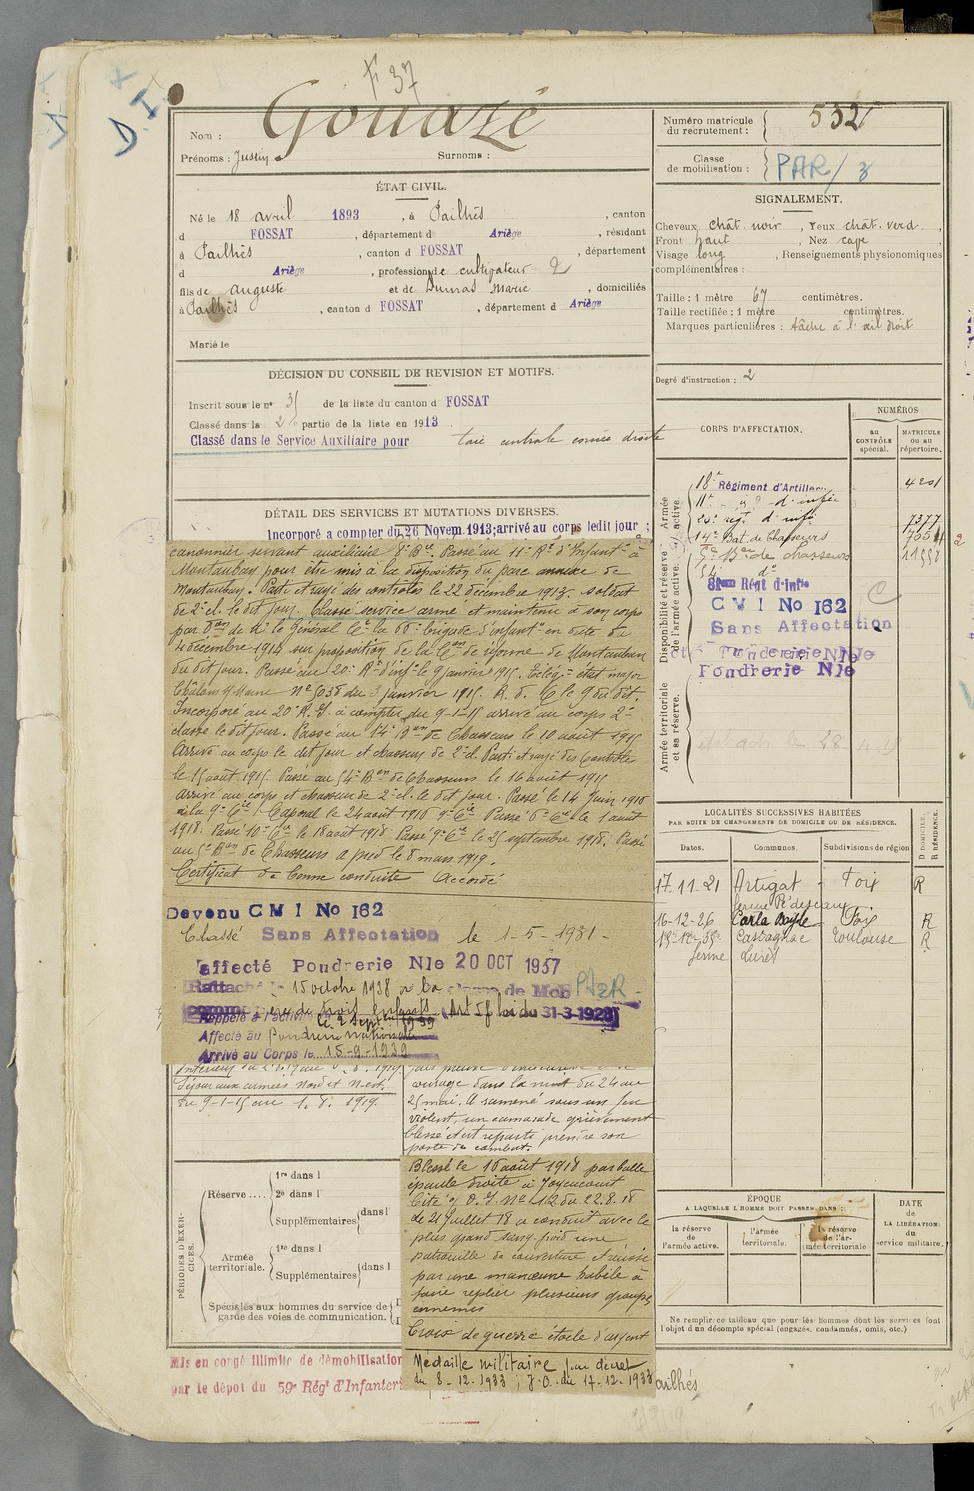 F 37
D.I
Nom : Gouazé
Prénoms : Justin Surnoms :
Numéro matricule du recrutement : 532
Classe de mobilisation : PAR/3
ÉTAT CIVIL.
Né le 18 avril 1893, à Pailhès, canton
d FOSSAT, département d Ariège, résidant
à Pailhès, canton d FOSSAT, département
d Ariège, profession de cultivateur 2
fils de auguste et de Dumas Marie, domiciliés
à Pailhès, canton d FOSSAT, département d Ariège
Marié le
DÉCISION DU CONSEIL DE REVISION ET MOTIFS.
Inscrit sous le n° 31 de la liste du canton d FOSSAT
Classé dans la 2e partie de la liste en 1913
Classé dans le Service Auxiliaire pour taie centrale cornée droite
DÉTAIL DES SERVICES ET MUTATIONS DIVERSES.
Incorporé à compter du 26 Novem. 1913; arrivé au corps ledit jour ;
canonnier servant auxiliaire 8e Bie. Passé au 11e Rt d'Infantie à
Montauban pour être mis à la disposition du parc annexe de
Montauban. Parti et rayé des contrôles le 22 décembre 1914. soldat
de 2e cl. le dit jour. Classé service armé et maintenu à son corps
par don de Mr le Général Ct la 66e brigade d'infantie en date du
4 décembre 1914 sur proposition de la Con de réforme de Montauban
du dit jour. Passé au 20e Rt d'inf le 9 janvier 1915. Télég. état major
Châlons s/ Marne No 5038 du 3 janvier 1915. A. d. C le 9 du dit
Incorporé au 20e R.I. à compter du 9-1-15 arrivé au corps 2e
classe le dit jour. Passé au 14e Bon de Chasseurs le 10 août 1915
Arrivé au corps le dit jour et chasseur de 2e cl. Parti et rayé des contrôles
le 15 août 1915. Passé au 54e Bon de Chasseurs le 16 août 1915
arrivé au corps et chasseur de 2e cl. le dit jour. Passé le 14 Juin 1918
à la 9e Cie. Caporal le 24 août 1918 9e Cie Passé 6e Cie le 1 août
1918. Passé 10e Cie le 18 août 1918 Passé 9e Cie le 25 septembre 1918. Passé
au 5e Bon de Chasseurs à pied le 8 mars 1919.
Certificat de bonne conduite Accordé
Devenu C M I No 162
Classé Sans Affectation le 1-5-1931-
affecté Poudrerie Nle 20 OCT 1937
Rattaché le 15 octobre 1938 à la classe de Mob PAR -
comme père de trois enfants (Art 58 loi du 31-3-1928)
Rappelé à l'activité le 2 Sept 1939
Affecté au Poudrerie Nationale
Arrivé au Corps le 15-9-1939
Séjour aux armées Nord et N-est.
du 9-1-15 au 1. 8. 1919.
ouvrage dans la nuit du 24 au
25 mai. A ramené sous un feu
violent, un camarade grièvement
blessé et est reparti prendre son
poste de combat.
Blessé le 16 août 1918 par balle
épaule droite à Joyeucourt
Cité O. I. No 112 du 22.8.18
le 21 juillet 18 a conduit avec le
plus grand sang-froid une
patrouille de couverture et réussi
par une manœuvre habile à
faire replier plusieurs groupes
ennemis
Croix de guerre étoile d'argent
Médaille militaire par décret
du 8-12-1933 ; J.O. du 17-12-1933
PÉRIODES D'EXERCICES.
Réserve .... 1re dans l
2e dans l
Supplémentaires dans l
Armée territoriale. 1re dans l
Supplémentaires dans l
Spéciales aux hommes du service de garde des voies de communication.
Mis en congé illimité de démobilisation
par le dépôt du 59e Rég' d'Infanterie
ailhés
SIGNALEMENT.
Cheveux chât. noir, Yeux chât. verd,
Front haut, Nez cave
Visage long, Renseignements physionomiques
complémentaires :
Taille : 1 mètre 67 centimètres.
Taille rectifiée : 1 mètre centimètres.
Marques particulières : tâche à l'œil droit
Degré d'instruction : 2
CORPS D'AFFECTATION.
NUMÉROS
au CONTRÔLE spécial.
MATRICULE ou au répertoire.
Armée active.
Disponibilité et réserve de l'armée active.
Armée territoriale et sa réserve.
18e Régiment d'Artillerie 4201
11e d'infie
20e régt d'infie 7377
14e Bat. de Chasseurs
5e Bon de chasseurs 11998
54e do
81eme Régt d'Infie
C M I No 162
Sans Affectation
Poudrerie Nle
Poudrerie Nle
LOCALITÉS SUCCESSIVES HABITÉES
PAR SUITE DE CHANGEMENTS DE DOMICILE OU DE RÉSIDENCE.
Dates. Communes. Subdivisions de région D DOMICILE. R RÉSIDENCE.
17.11-21 Artigat - Foix R
16-12-26 Carla Bayle Foix R
Castagnac Toulouse R
ferme
ÉPOQUE
A LAQUELLE L'HOMME DOIT PASSER DANS :
la réserve de l'armée active.
l'armée territoriale.
la réserve de l'armée territoriale
DATE de LA LIBÉRATION du service militaire.
Ne remplir ce tableau que pour les hommes dont les services font
l'objet d'un décompte spécial (engagés, condamnés, omis, etc.)